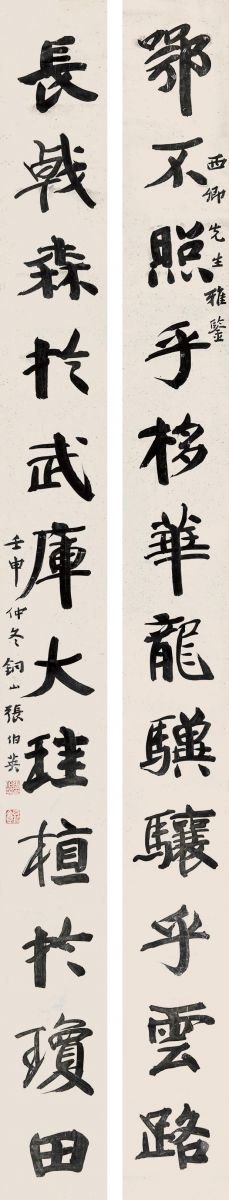 鄂不照乎栘華龍驥驤乎雲路
西卿先生雅鑒
長戟森於武庫大珪植於瓊田
壬申仲冬銅山張伯英